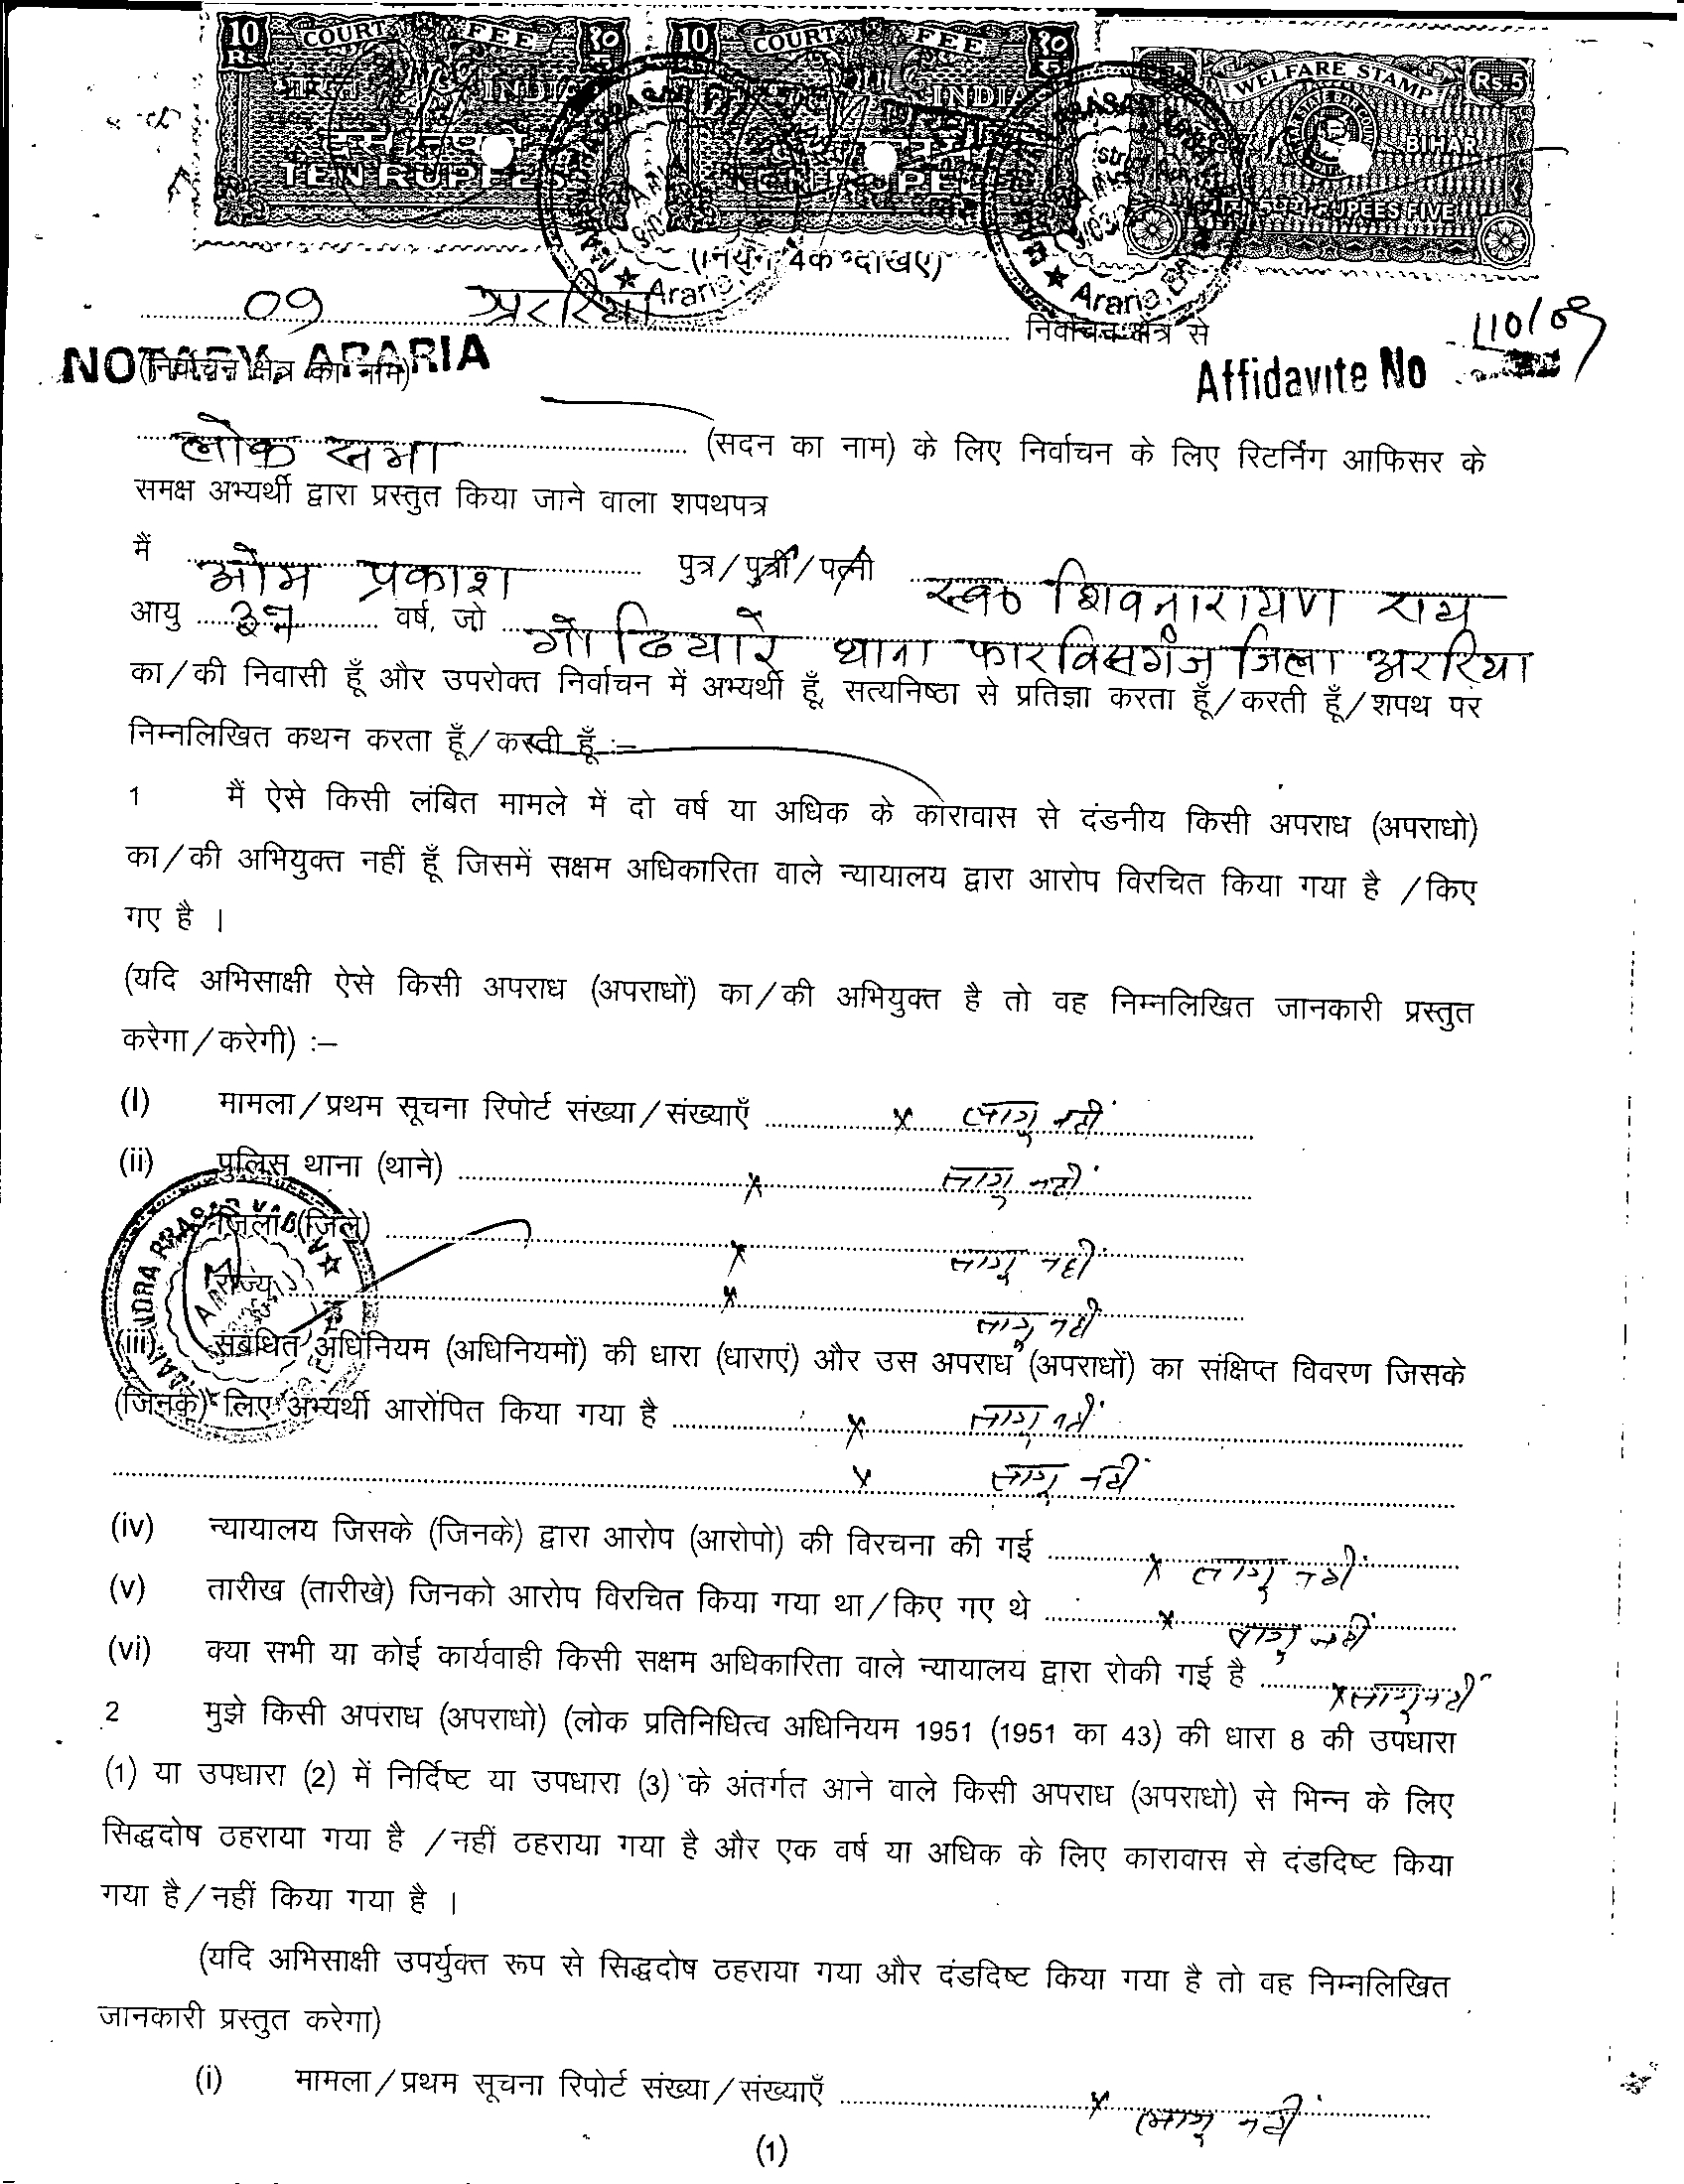 10 Rs COURT FEE १० रु 10 COURT FEE १० रु WELFARE STAMP Rs 5
भारत INDIA INDIA BIHAR
TEN RUPEES TEN RUPEES RUPEES FIVE
(नियम 4क देखिए)
09 अररिया निर्वाचन क्षेत्र से
NOTARY, ARARIA (निर्वाचन क्षेत्र का नाम) Affidavite No 110/09
लोक सभा (सदन का नाम) के लिए निर्वाचन के लिए रिटर्निंग आफिसर के
समक्ष अभ्यर्थी द्वारा प्रस्तुत किया जाने वाला शपथपत्र
मैं ओम प्रकाश पुत्र/पुत्री/पत्नी स्व० शिवनारायण राय
आयु वर्ष, जो गोढियारे थाना फारविसगंज जिला अररिया
का/की निवासी हूँ और उपरोक्त निर्वाचन में अभ्यर्थी हूँ, सत्यनिष्ठा से प्रतिज्ञा करता हूँ/करती हूँ/शपथ पर
निम्नलिखित कथन करता हूँ/करती हूँ :–
1 मैं ऐसे किसी लंबित मामले में दो वर्ष या अधिक के कारावास से दंडनीय किसी अपराध (अपराधो)
का/की अभियुक्त नहीं हूँ जिसमें सक्षम अधिकारिता वाले न्यायालय द्वारा आरोप विरचित किया गया है /किए
गए है ।
(यदि अभिसाक्षी ऐसे किसी अपराध (अपराधों) का/की अभियुक्त है तो वह निम्नलिखित जानकारी प्रस्तुत
करेगा/करेगी) :–
(i) मामला/प्रथम सूचना रिपोर्ट संख्या/संख्याएँ x लागू नहीं
(ii) पुलिस थाना (थाने) x लागू नहीं
जिला (जिले) x लागू नहीं
राज्य x लागू नहीं
(iii) संबंधित अधिनियम (अधिनियमों) की धारा (धाराएं) और उस अपराध (अपराधों) का संक्षिप्त विवरण जिसके
(जिनके) लिए अभ्यर्थी आरोपित किया गया है x लागू नहीं
x लागू नहीं
(iv) न्यायालय जिसके (जिनके) द्वारा आरोप (आरोपो) की विरचना की गई x लागू नहीं
(v) तारीख (तारीखे) जिनको आरोप विरचित किया गया था/किए गए थे x लागू नहीं
(vi) क्या सभी या कोई कार्यवाही किसी सक्षम अधिकारिता वाले न्यायालय द्वारा रोकी गई है x लागू नहीं
2 मुझे किसी अपराध (अपराधो) (लोक प्रतिनिधित्व अधिनियम 1951 (1951 का 43) की धारा 8 की उपधारा
(1) या उपधारा (2) में निर्दिष्ट या उपधारा (3) के अंतर्गत आने वाले किसी अपराध (अपराधो) से भिन्न के लिए
सिद्धदोष ठहराया गया है /नहीं ठहराया गया है और एक वर्ष या अधिक के लिए कारावास से दंडदिष्ट किया
गया है/नहीं किया गया है ।
(यदि अभिसाक्षी उपर्युक्त रूप से सिद्धदोष ठहराया गया और दंडदिष्ट किया गया है तो वह निम्नलिखित
जानकारी प्रस्तुत करेगा)
(i) मामला/प्रथम सूचना रिपोर्ट संख्या/संख्याएँ x लागू नहीं
(1)